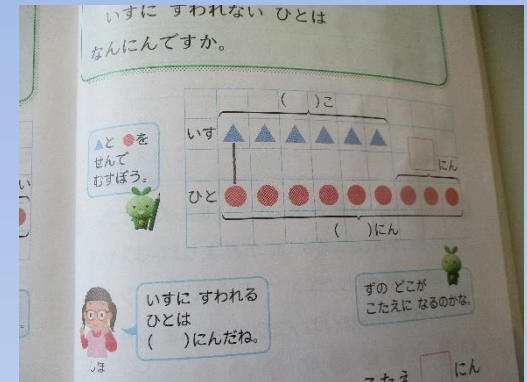 いすに すわれない ひとは
なんにんですか。
(　　)こ
▲と ●を
せんで
むすぼう。
いす
にん
ひと
(　　)にん
い
いすに すわれる
ひとは
(　　)にんだね。
ずの どこが
こたえに なるのかな。
しほ
こたえ
にん